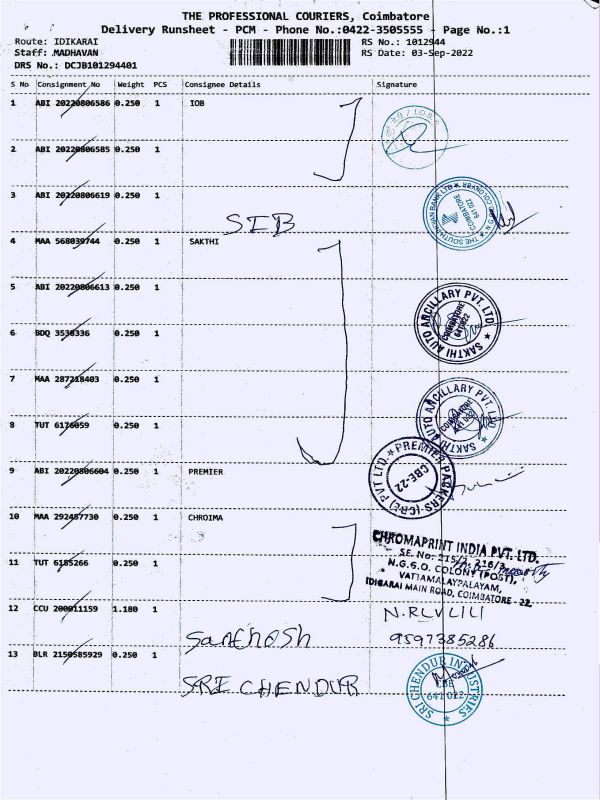 THE PROFESSIONAL COURIERS, Coimbatore
Delivery Runsheet - PCM - Phone No.:0422-3505555 - Page No.:1
Route: IDIKARAI RS No.: 1012944
Staff: MADHAVAN RS Date: 03-Sep-2022
DRS No.: DCJB101294401
S No Consignment No Weight PCS Consignee Details Signature
1 ABI 20220806586 0.250 1 IOB
2 ABI 20220806585 0.250 1
3 ABI 20220806619 0.250 1
SIB
THE SOUTH INDIAN BANK LTD
COIMBATORE
641 022
4 MAA 568039744 0.250 1 SAKTHI
5 ABI 20220806613 0.250 1
SAKTHI AUTO ANCILLARY PVT. LTD
COIMBATORE
641 022
6 BDQ 3538336 0.250 1
7 MAA 287218403 0.250 1
SAKTHI AUTO ANCILLARY PVT. LTD
COIMBATORE
641 022
8 TUT 6176059 0.250 1
9 ABI 20220806604 0.250 1 PREMIER
PREMIER PACKERS (CBE) PVT LTD.
CBE-22
10 MAA 292457730 0.250 1 CHROIMA
CHROMAPRINT INDIA PVT. LTD.
SE. No: 215/2, 216/3
N.G.G.O. COLONY (POST),
VATTAMALAYPALAYAM,
IDIGARAI MAIN ROAD, COIMBATORE - 22
11 TUT 6185266 0.250 1
12 CCU 200011159 1.180 1
Santhosh
9597385286
13 BLR 2150585929 0.250 1
SRI CHENDUR
SRI CHENDUR INDUSTRIES
CBE
641 022